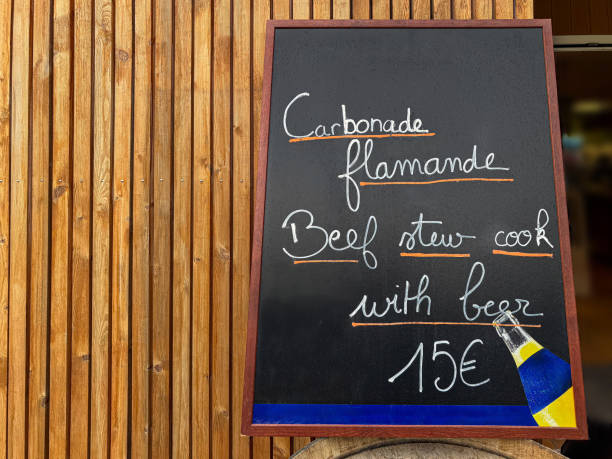 Carbonade
flamande
Beef stew cook
with beer
15€